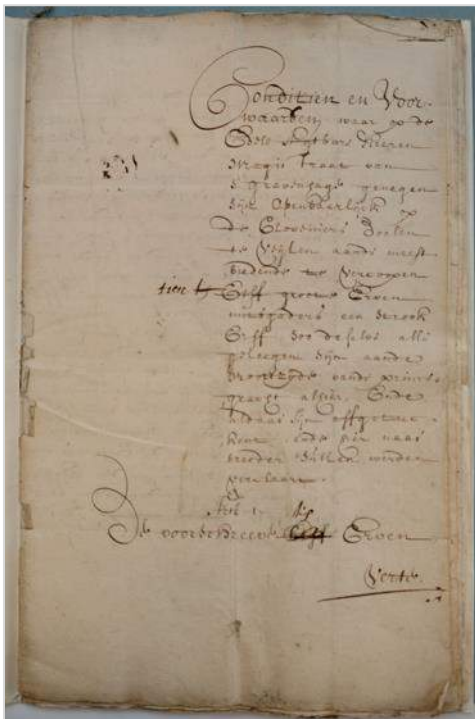 Conditien en Voor-
waarden, waar op de
Edele Agtbare Heeren
Magistraat van
s'Gravenhage genegen
zijn openbaerlijck op
de Cloveniers Doelen
te Veijlen aande meest
biedende te Vercoopen
tien Elff groote Erven
mitsgaders een
Erff, soo de selve alle
geleegen zijn aande
vande prince
graght alhier. Ende
aldaar zijn affgetee-
kent, ende hier naar
breeder sullen werden
verclaart.
Art: 1.
De voorschreeve Elff Erven
Verte.